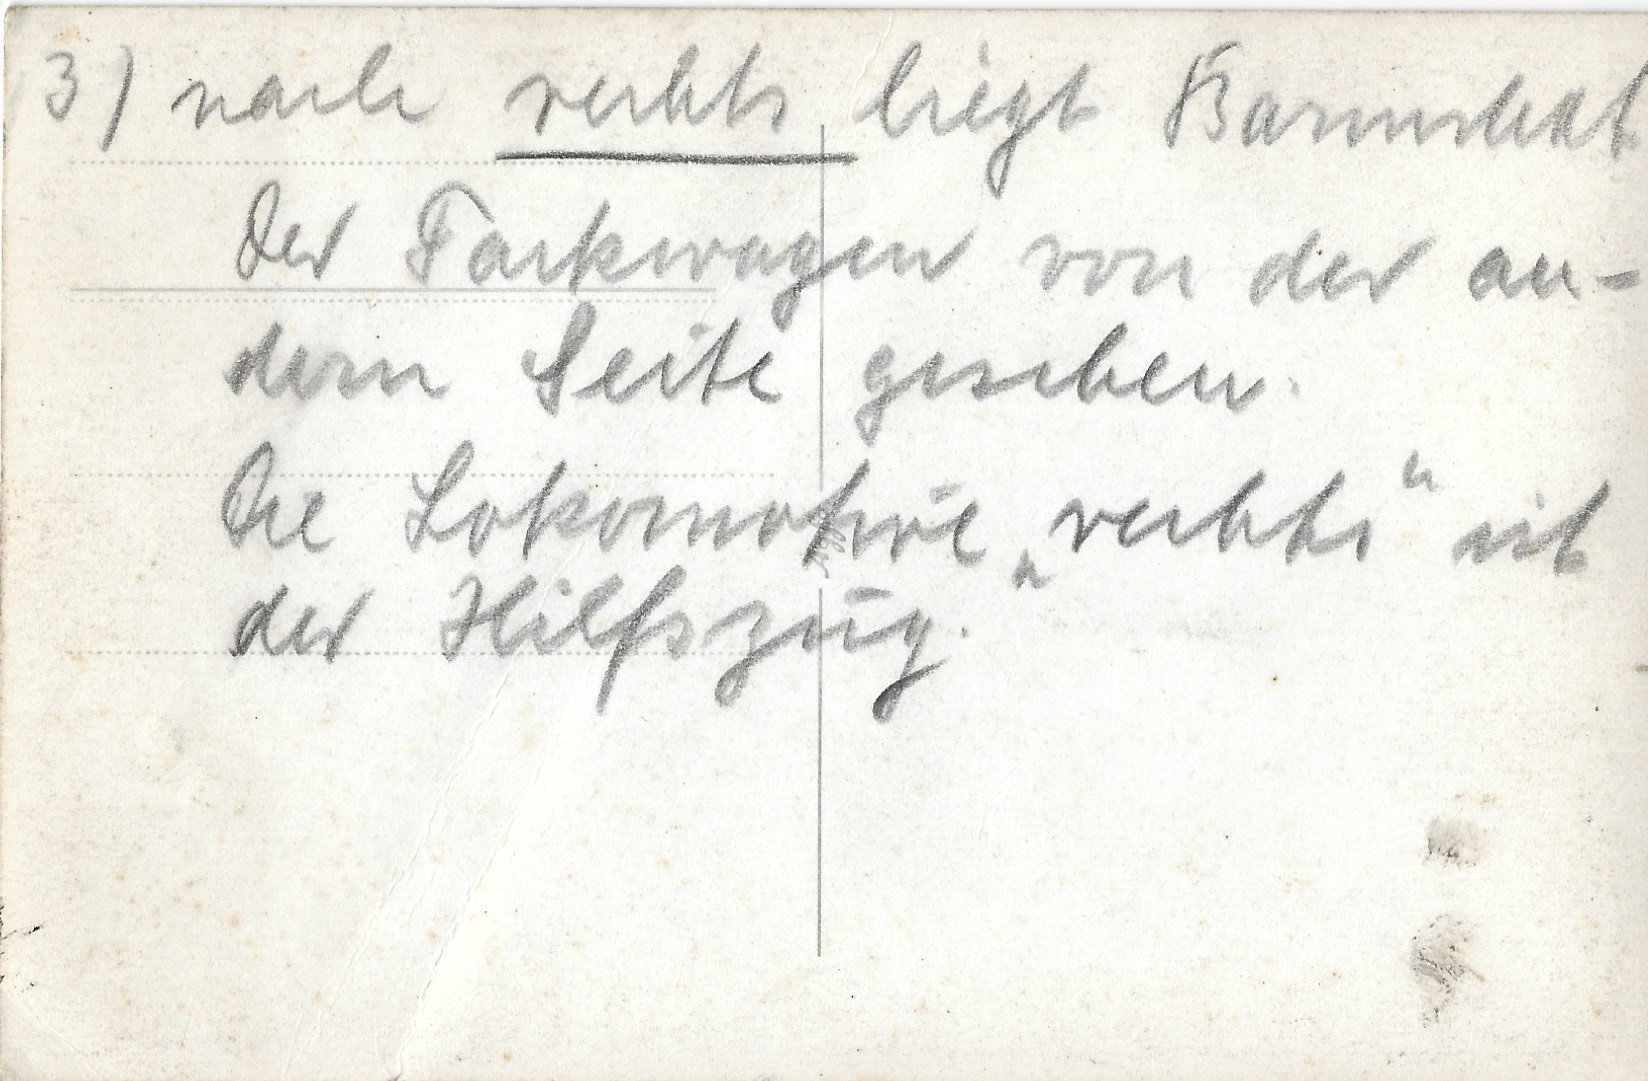 3) nach rechts liegt Barmstedt
Der Packwagen von der an-
dern Seite gesehen.
Die Lokomotive „rechts“ ist
der Hilfszug.